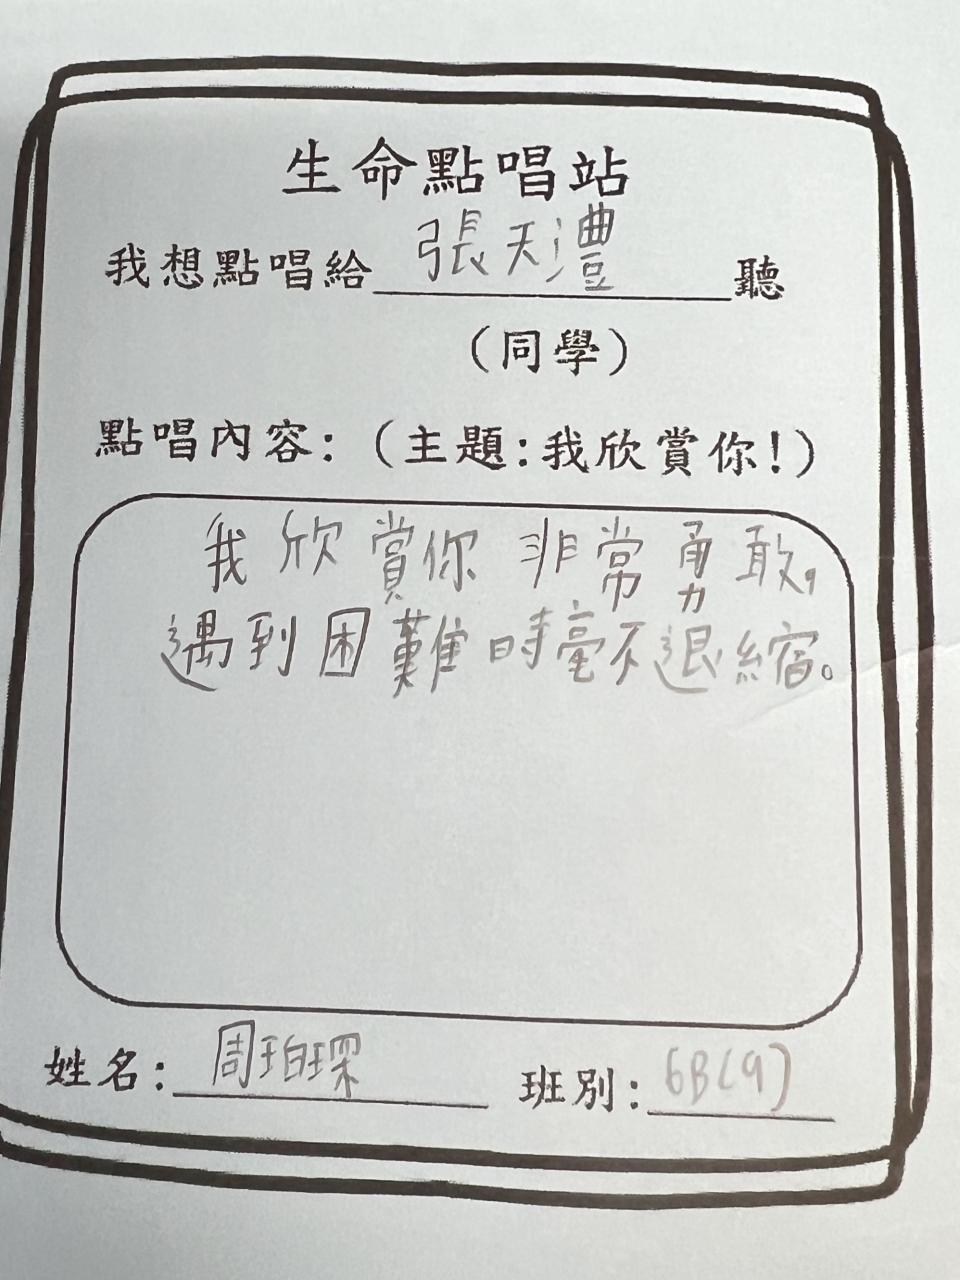 生命點唱站
我想點唱給張天澧聽
(同學)
點唱內容:(主題:我欣賞你!)
我欣賞你非常勇敢,
遇到困難時毫不退縮。
姓名:周珀琛 班別:6B(9)